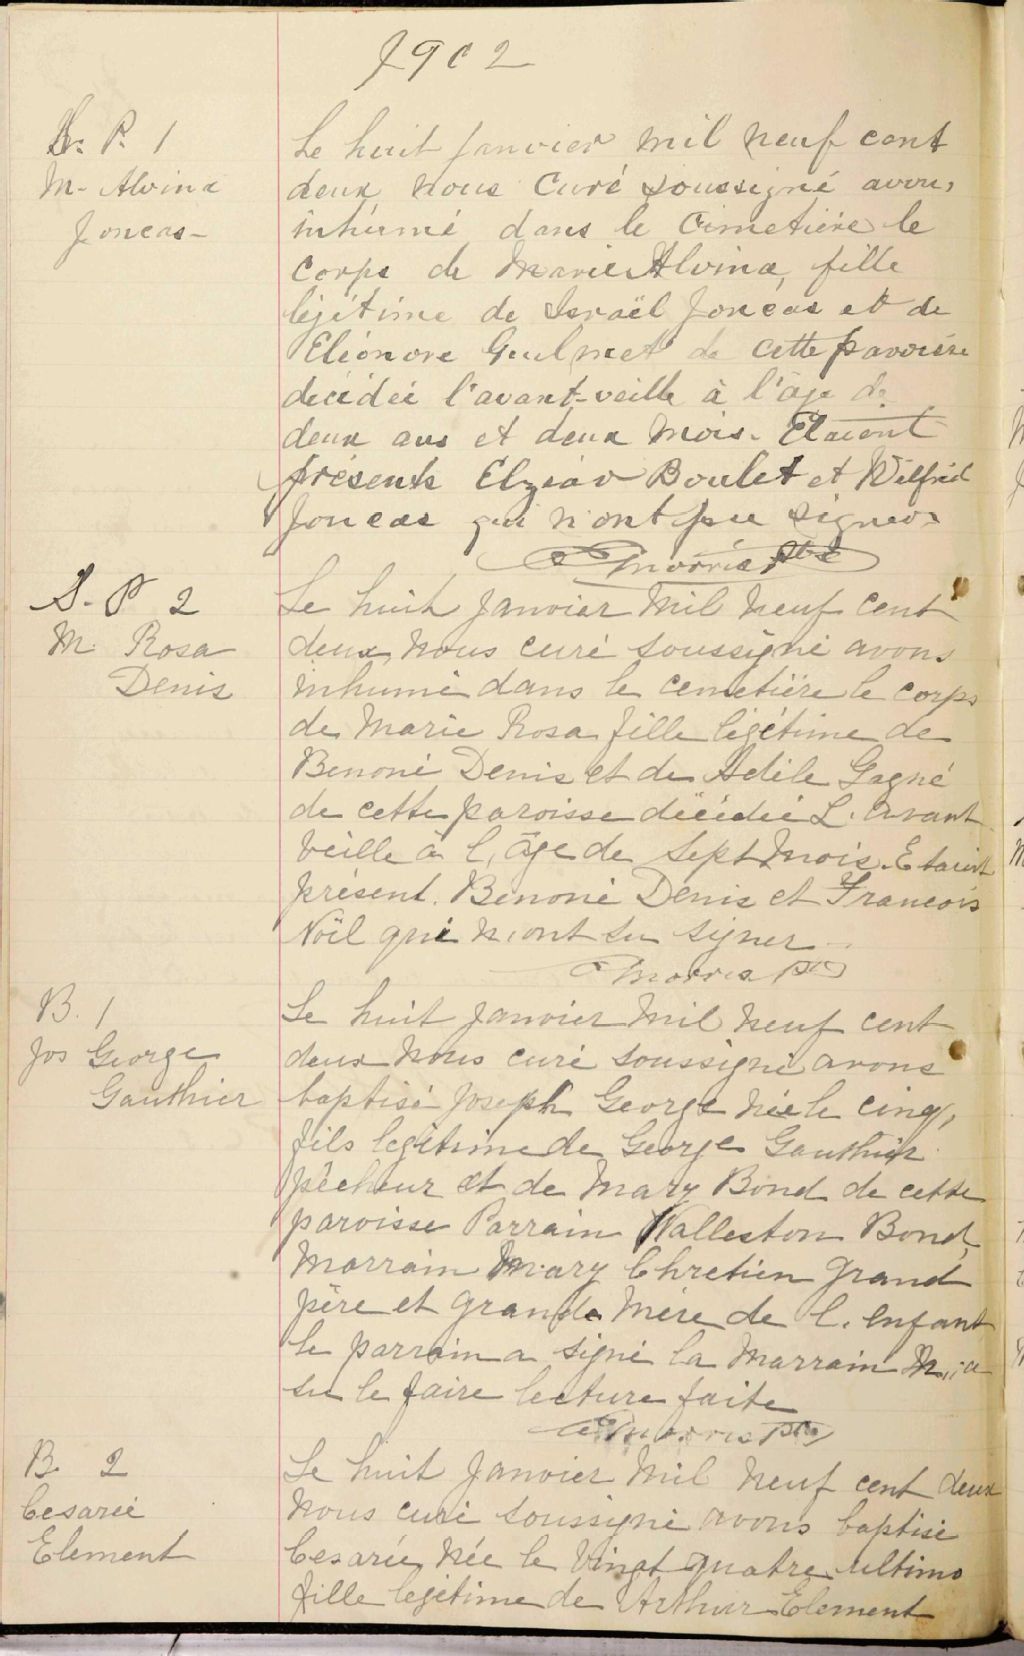 1902
S. P. 1
M. Alvina
Joncas
Le huit Janvier mil neuf cent
deux nous Curé soussigné avons
inhumé dans le Cimetière le
corps de Marie Alvina, fille
légitime de Israël Joncas et de
Eléonore Guilmet de cette paroisse
décédée l'avant-veille à l'âge de
deux ans et deux mois. Etaient
présents Elzéar Boulet et Wilfrid
Joncas qui n'ont pu signer.
Morris Ptre
S. P 2
M. Rosa
Denis
Le huit Janvier mil neuf cent
deux, nous curé soussigné avons
inhumé dans le cemetière le corps
de Marie Rosa fille légitime de
Benoni Denis et de Adèle Gagné
de cette paroisse décédée L'avant
veille à l, âge de Sept Mois. Etaient
présent. Benoni Denis et Francois
Noël qui n'ont su signer
Morris Ptre
B. 1
Jos George
Gauthier
Le huit Janvier mil neuf cent
deux nous curé soussigné avons
baptisé Joseph George née le cinq,
fils légitime de George Gauthier
pêcheur et de Mary Bond de cette
paroisse Parrain Walleston Bond,
Marrain Mary Chretien Grand
père et Grande Mère de l. enfant
Le parrain a signé la Marrain n,,a
su le faire lecture faite
Morris Ptre
B. 2
Cesarie
Element
Le huit Janvier mil neuf cent deux
nous curé soussigné avons baptisé
Cesarie, née le vingt quatre ultimo
fille legitime de Arthur Element